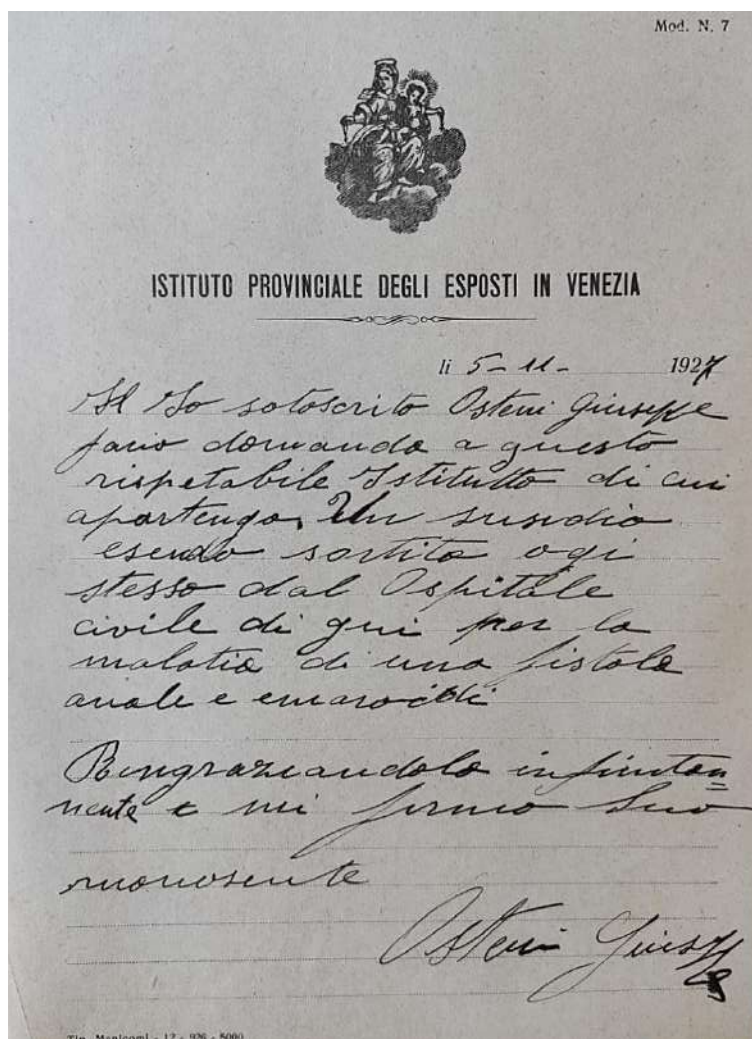 Mod. N. 7
ISTITUTO PROVINCIALE DEGLI ESPOSTI IN VENEZIA
li 5-11- 1927
Il Io sotoscrito Osteni Giuseppe
facio domanda a questo
rispetabile Istitutto di cui
apartengo. Un susidio
esendo sortito ogi
stesso dal Ospitale
civile di qui per la
malatia di una fistola
anale e
Rengraziandolo infinitam=
mente e mi firmo Suo
Osteni Giuseppe
Tip. Manicomi - 12 - 926 - 5000